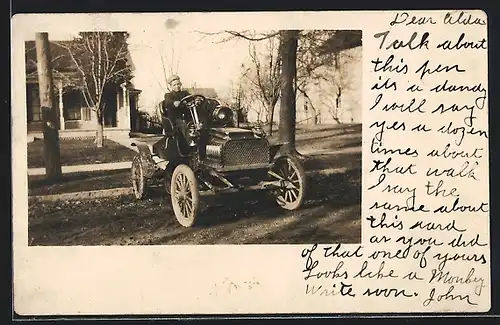 Dear Alda
Talk about
this pen
its a dandy
I will say
yes a dozen
times about
that walk
I say the
same about
this card
as you did
of that one of yours
Looks like a Monkey
Write soon. John